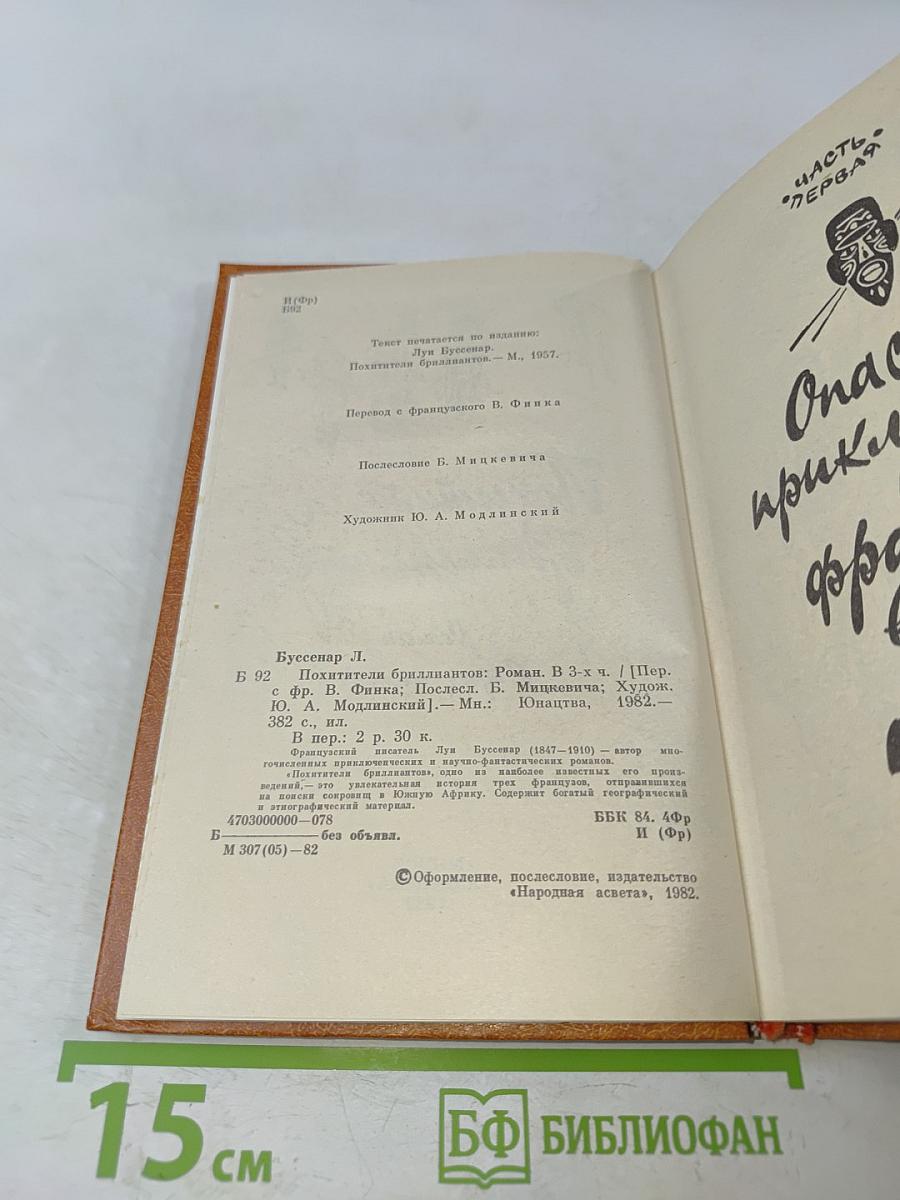 И (Фр)
Б92
Текст печатается по изданию:
Луи Буссенар.
Похитители бриллиантов.— М., 1957.
Перевод с французского В. Финка
Послесловие Б. Мицкевича
Художник Ю. А. Модлинский
Буссенар Л.
Б 92 Похитители бриллиантов: Роман. В 3-х ч. / [Пер.
с фр. В. Финка; Послесл. Б. Мицкевича; Худож.
Ю. А. Модлинский].— Мн.: Юнацтва, 1982.—
382 с., ил.
В пер.: 2 р. 30 к.
Французский писатель Луи Буссенар (1847—1910) — автор мно-
гочисленных приключенческих и научно-фантастических романов.
«Похитители бриллиантов», одно из наиболее известных его произ-
ведений,— это увлекательная история трех французов, отправившихся
на поиски сокровищ в Южную Африку. Содержит богатый географический
и этнографический материал.
4703000000—078
Б———без объявл.
М 307(05)—82
ББК 84. 4Фр
И (Фр)
© Оформление, послесловие, издательство
«Народная асвета», 1982.
ЧАСТЬ
ПЕРВАЯ
Опас
приклю
фра
15 см
БФ БИБЛИОФАН